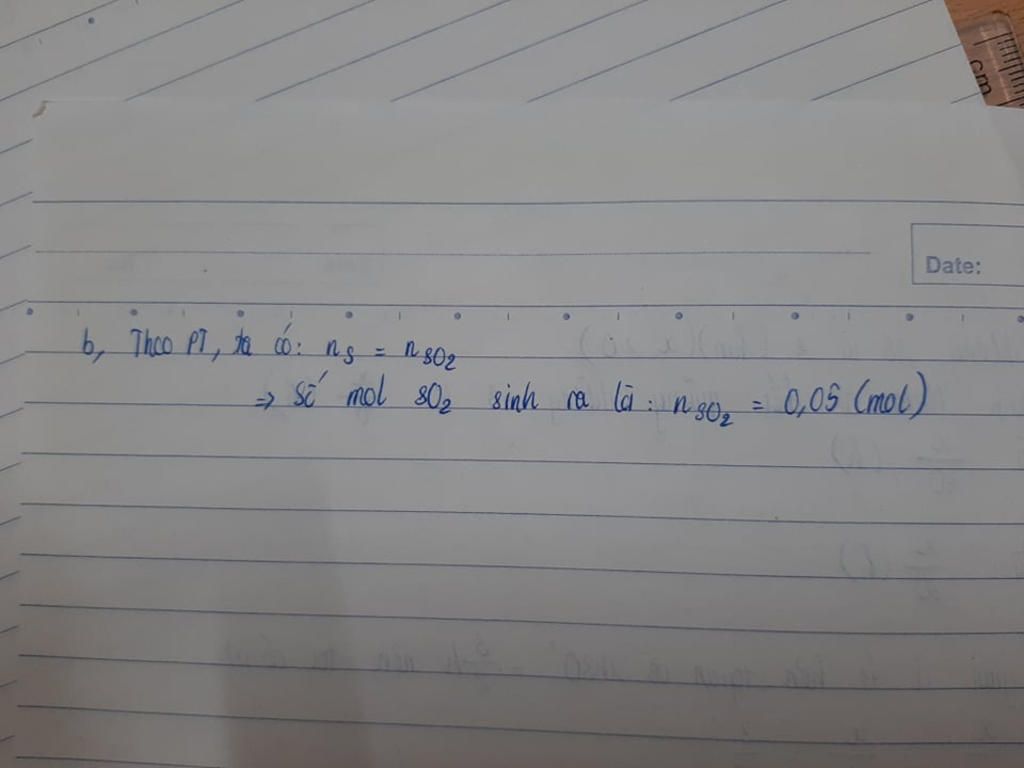 cm
Date:
b, Theo PT, ta có: nS = nSO2
=> Số mol SO2 sinh ra là: nSO2 = 0,05 (mol)